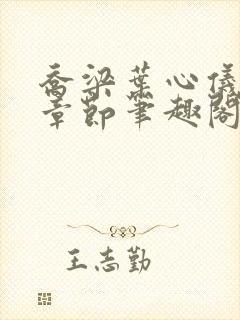 乔梁叶心仪
章节笔趣阁
王志勤